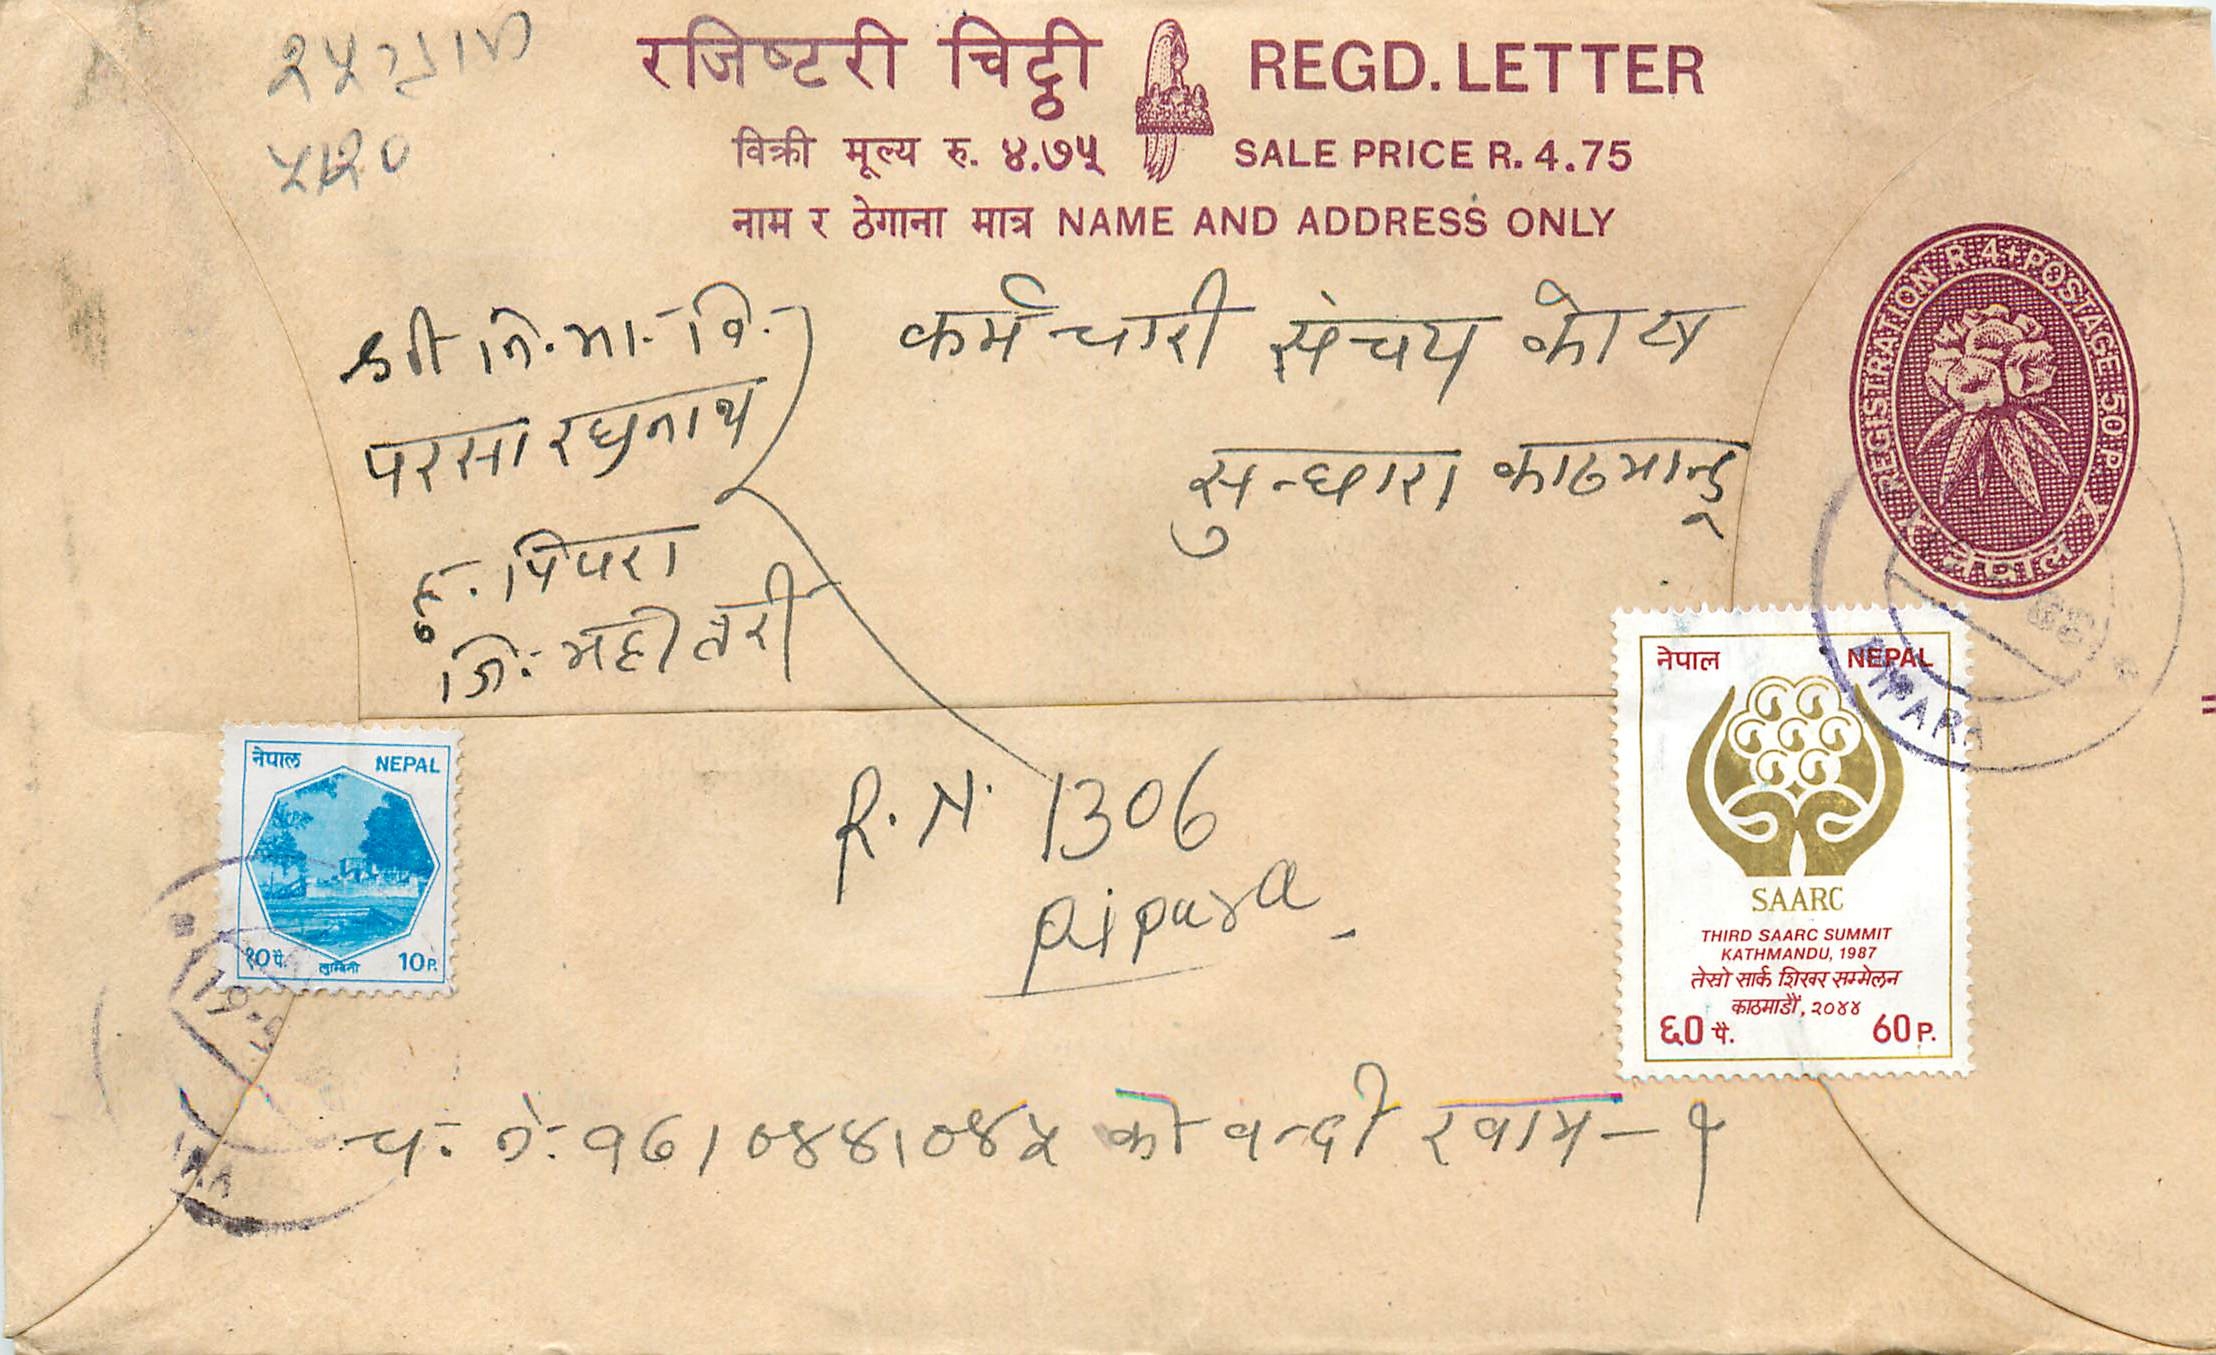 रजिष्टरी चिट्ठी REGD. LETTER
विक्री मूल्य रु. ४.७५ SALE PRICE R. 4.75
नाम र ठेगाना मात्र NAME AND ADDRESS ONLY
REGISTRATION R.4+POSTAGE 50 P.
नेपाल
श्री नि.मा.वि.
परसा रघुनाथ
हु. पिपरा
जि: महोतरी
कर्मचारी संचय कोष
सुन्धारा काठमान्डू
R.N. 1306
pipara
नेपाल NEPAL
१० पै. लुम्बिनी 10 P.
नेपाल NEPAL
SAARC
THIRD SAARC SUMMIT
KATHMANDU, 1987
तेस्रो सार्क शिखर सम्मेलन
काठमाडौं, २०४४
६० पै. 60 P.
PIPARA
च. नं. १६/०४४/०४५ को वन्दी खाम - १